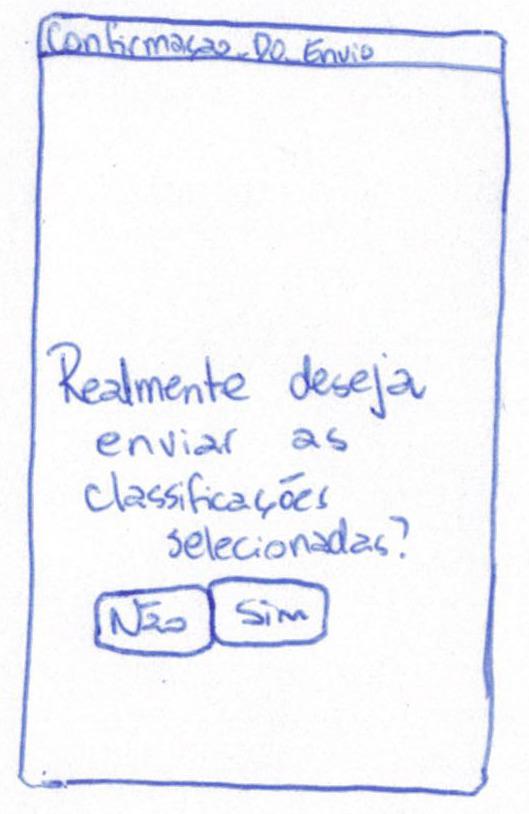 Confirmação Do Envio
Realmente deseja
enviar as
classificações
selecionadas?
Não Sim